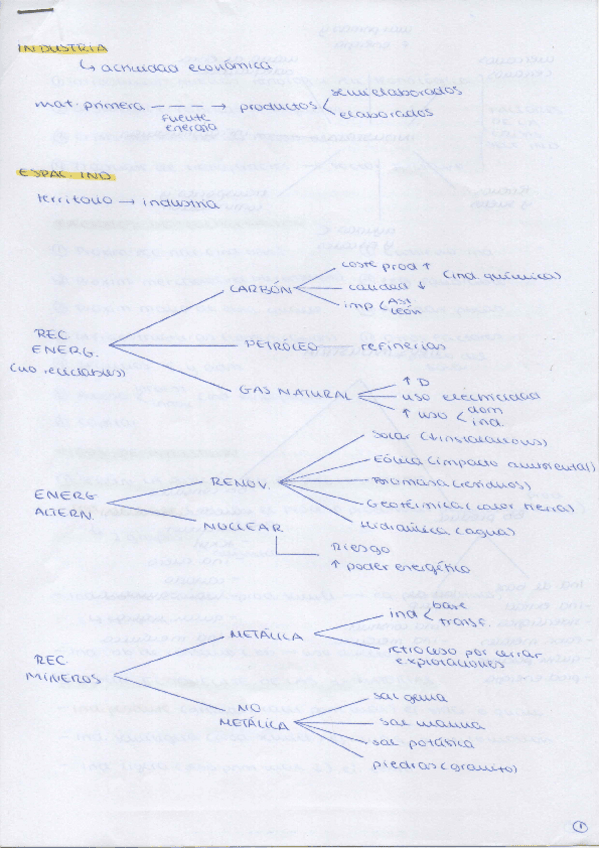 INDUSTRIA
↳ actividad económica
mat. primera ---> productos < semielaborados
elaborados
fuente
energía
ESPAC. IND
territorio → industria
REC.
ENERG.
(no reciclables)
CARBÓN
coste prod ↑
calidad ↓
(ind. química)
imp < Ast
León
PETRÓLEO — refinerías
GAS NATURAL
↑ D
uso electricidad
↑ uso < dom
ind.
ENERG
ALTERN.
RENOV.
Solar (+ instalaciones)
Eólica (impacto ambiental)
Biomasa (residuos)
Geotérmica (calor tierra)
Hidraúlica (agua)
NUCLEAR
Riesgo
↑ poder energético
REC
MINEROS
METÁLICA
ind < base
transf.
retroceso por cerrar
explotaciones
NO
METÁLICA
sal gema
sal marina
sal potásica
piedras (granito)
1